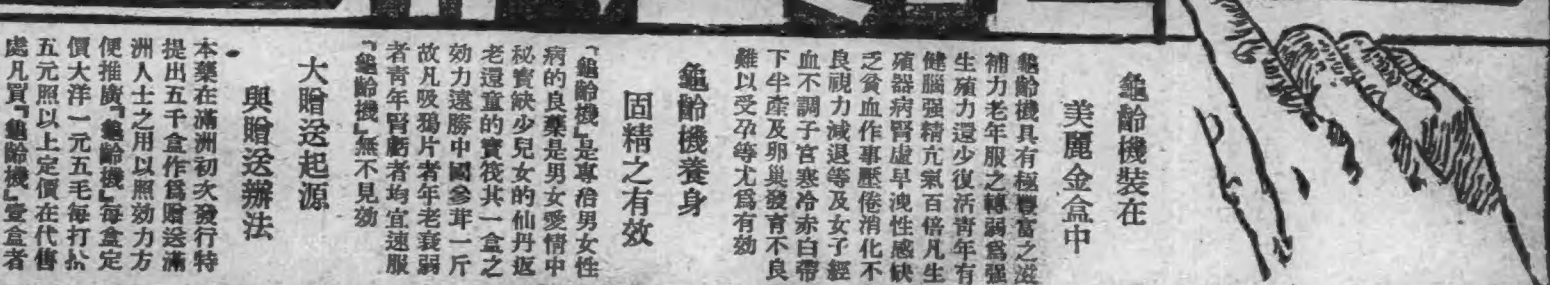 龜齡機裝在
美麗金盒中
龜齡機具有極豐富之滋
補力老年服之轉弱爲强
生殖力還少復活靑年有
健腦强精亢氣百倍凡生
殖器病腎虛早洩性感缺
乏貧血作事壓倦消化不
良視力減退等及女子經
血不調子宮寒冷赤白帶
下半產及卵巢發育不良
難以受孕等尤爲有効
龜齡機養身
固精之有效
『龜齡機』是專治男女性
病的良藥是男女愛情中
秘寳缺少兒女的仙丹返
老還童的寳筏其一盒之
効力遠勝中國參茸一斤
故凡吸鴉片者年老衰弱
者靑年腎虧者均宜速服
『龜齡機』無不見効
大贈送起源
與贈送辦法
本藥在滿洲初次發行特
提出五千盒作爲贈送滿
洲人士之用以照効力方
便推廣『龜齡機』每盒定
價大洋一元五毛每打拾
五元照以上定價在代售
處凡買『龜齡機』壹盒者